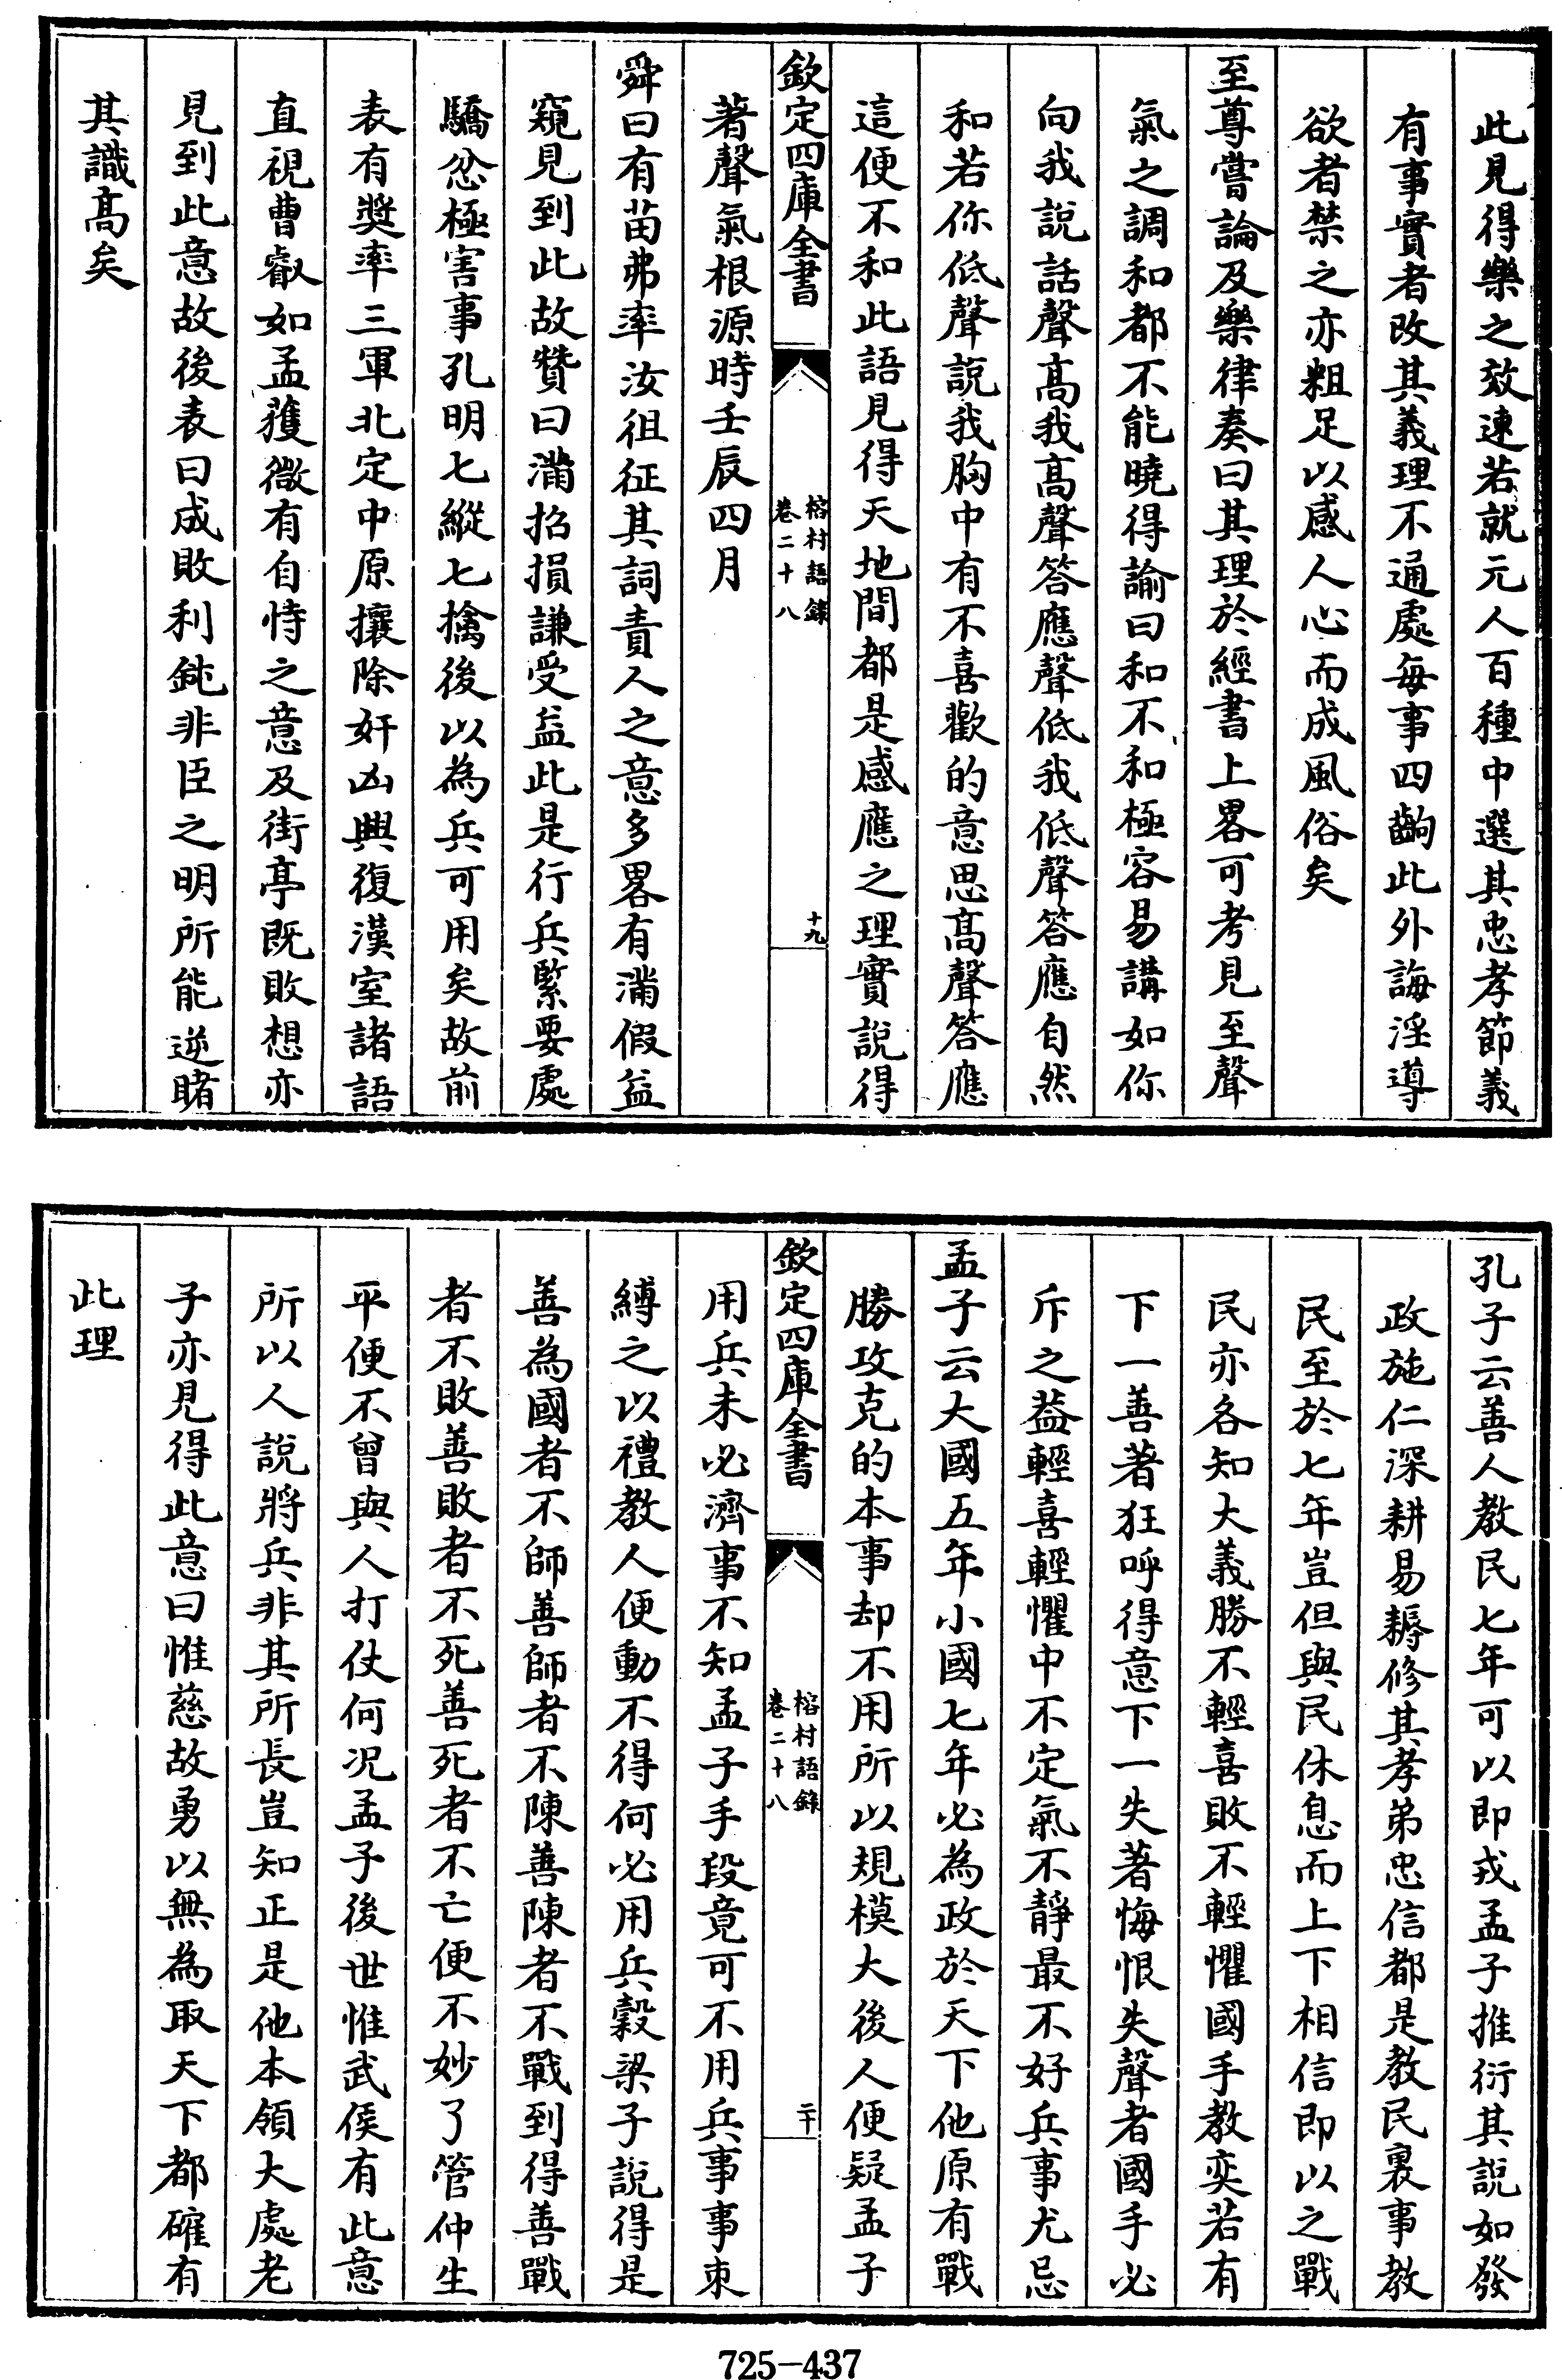 此見得樂之效速若就元人百種中選其忠孝節義
有事實者改其義理不通處每事四齣此外誨淫導
欲者禁之亦粗足以感人心而成風俗矣
至尊嘗論及樂律奏曰其理於經書上畧可考見至聲
氣之調和都不能曉得諭曰和不和極容易講如你
向我說話聲高我高聲答應聲低我低聲答應自然
和若你低聲說我胸中有不喜歡的意思高聲答應
這便不和此語見得天地間都是感應之理實說得
欽定四庫全書
榕村語錄
卷二十八
十九
著聲氣根源時壬辰四月
舜曰有苗弗率汝徂征其詞責人之意多畧有滿假益
窺見到此故贊曰滿招損謙受益此是行兵緊要處
驕忿極害事孔明七縱七擒後以為兵可用矣故前
表有獎率三軍北定中原攘除奸凶興復漢室諸語
直視曹叡如孟獲微有自恃之意及街亭既敗想亦
見到此意故後表曰成敗利鈍非臣之明所能逆睹
其識高矣
孔子云善人教民七年可以即戎孟子推衍其說如發
政施仁深耕易耨修其孝弟忠信都是教民裏事教
民至於七年豈但與民休息而上下相信即以之戰
民亦各知大義勝不輕喜敗不輕懼國手教奕若有
下一善著狂呼得意下一失著悔恨失聲者國手必
斥之葢輕喜輕懼中不定氣不靜最不好兵事尤忌
孟子云大國五年小國七年必為政於天下他原有戰
勝攻克的本事却不用所以規模大後人便疑孟子
欽定四庫全書
榕村語錄
卷二十八
二十
用兵未必濟事不知孟子手段竟可不用兵事事束
縛之以禮教人便動不得何必用兵穀梁子說得是
善為國者不師善師者不陳善陳者不戰到得善戰
者不敗善敗者不死善死者不亡便不妙了管仲生
平便不曾與人打仗何况孟子後世惟武侯有此意
所以人說將兵非其所長豈知正是他本領大處老
子亦見得此意曰惟慈故勇以無為取天下都確有
此理
725-437